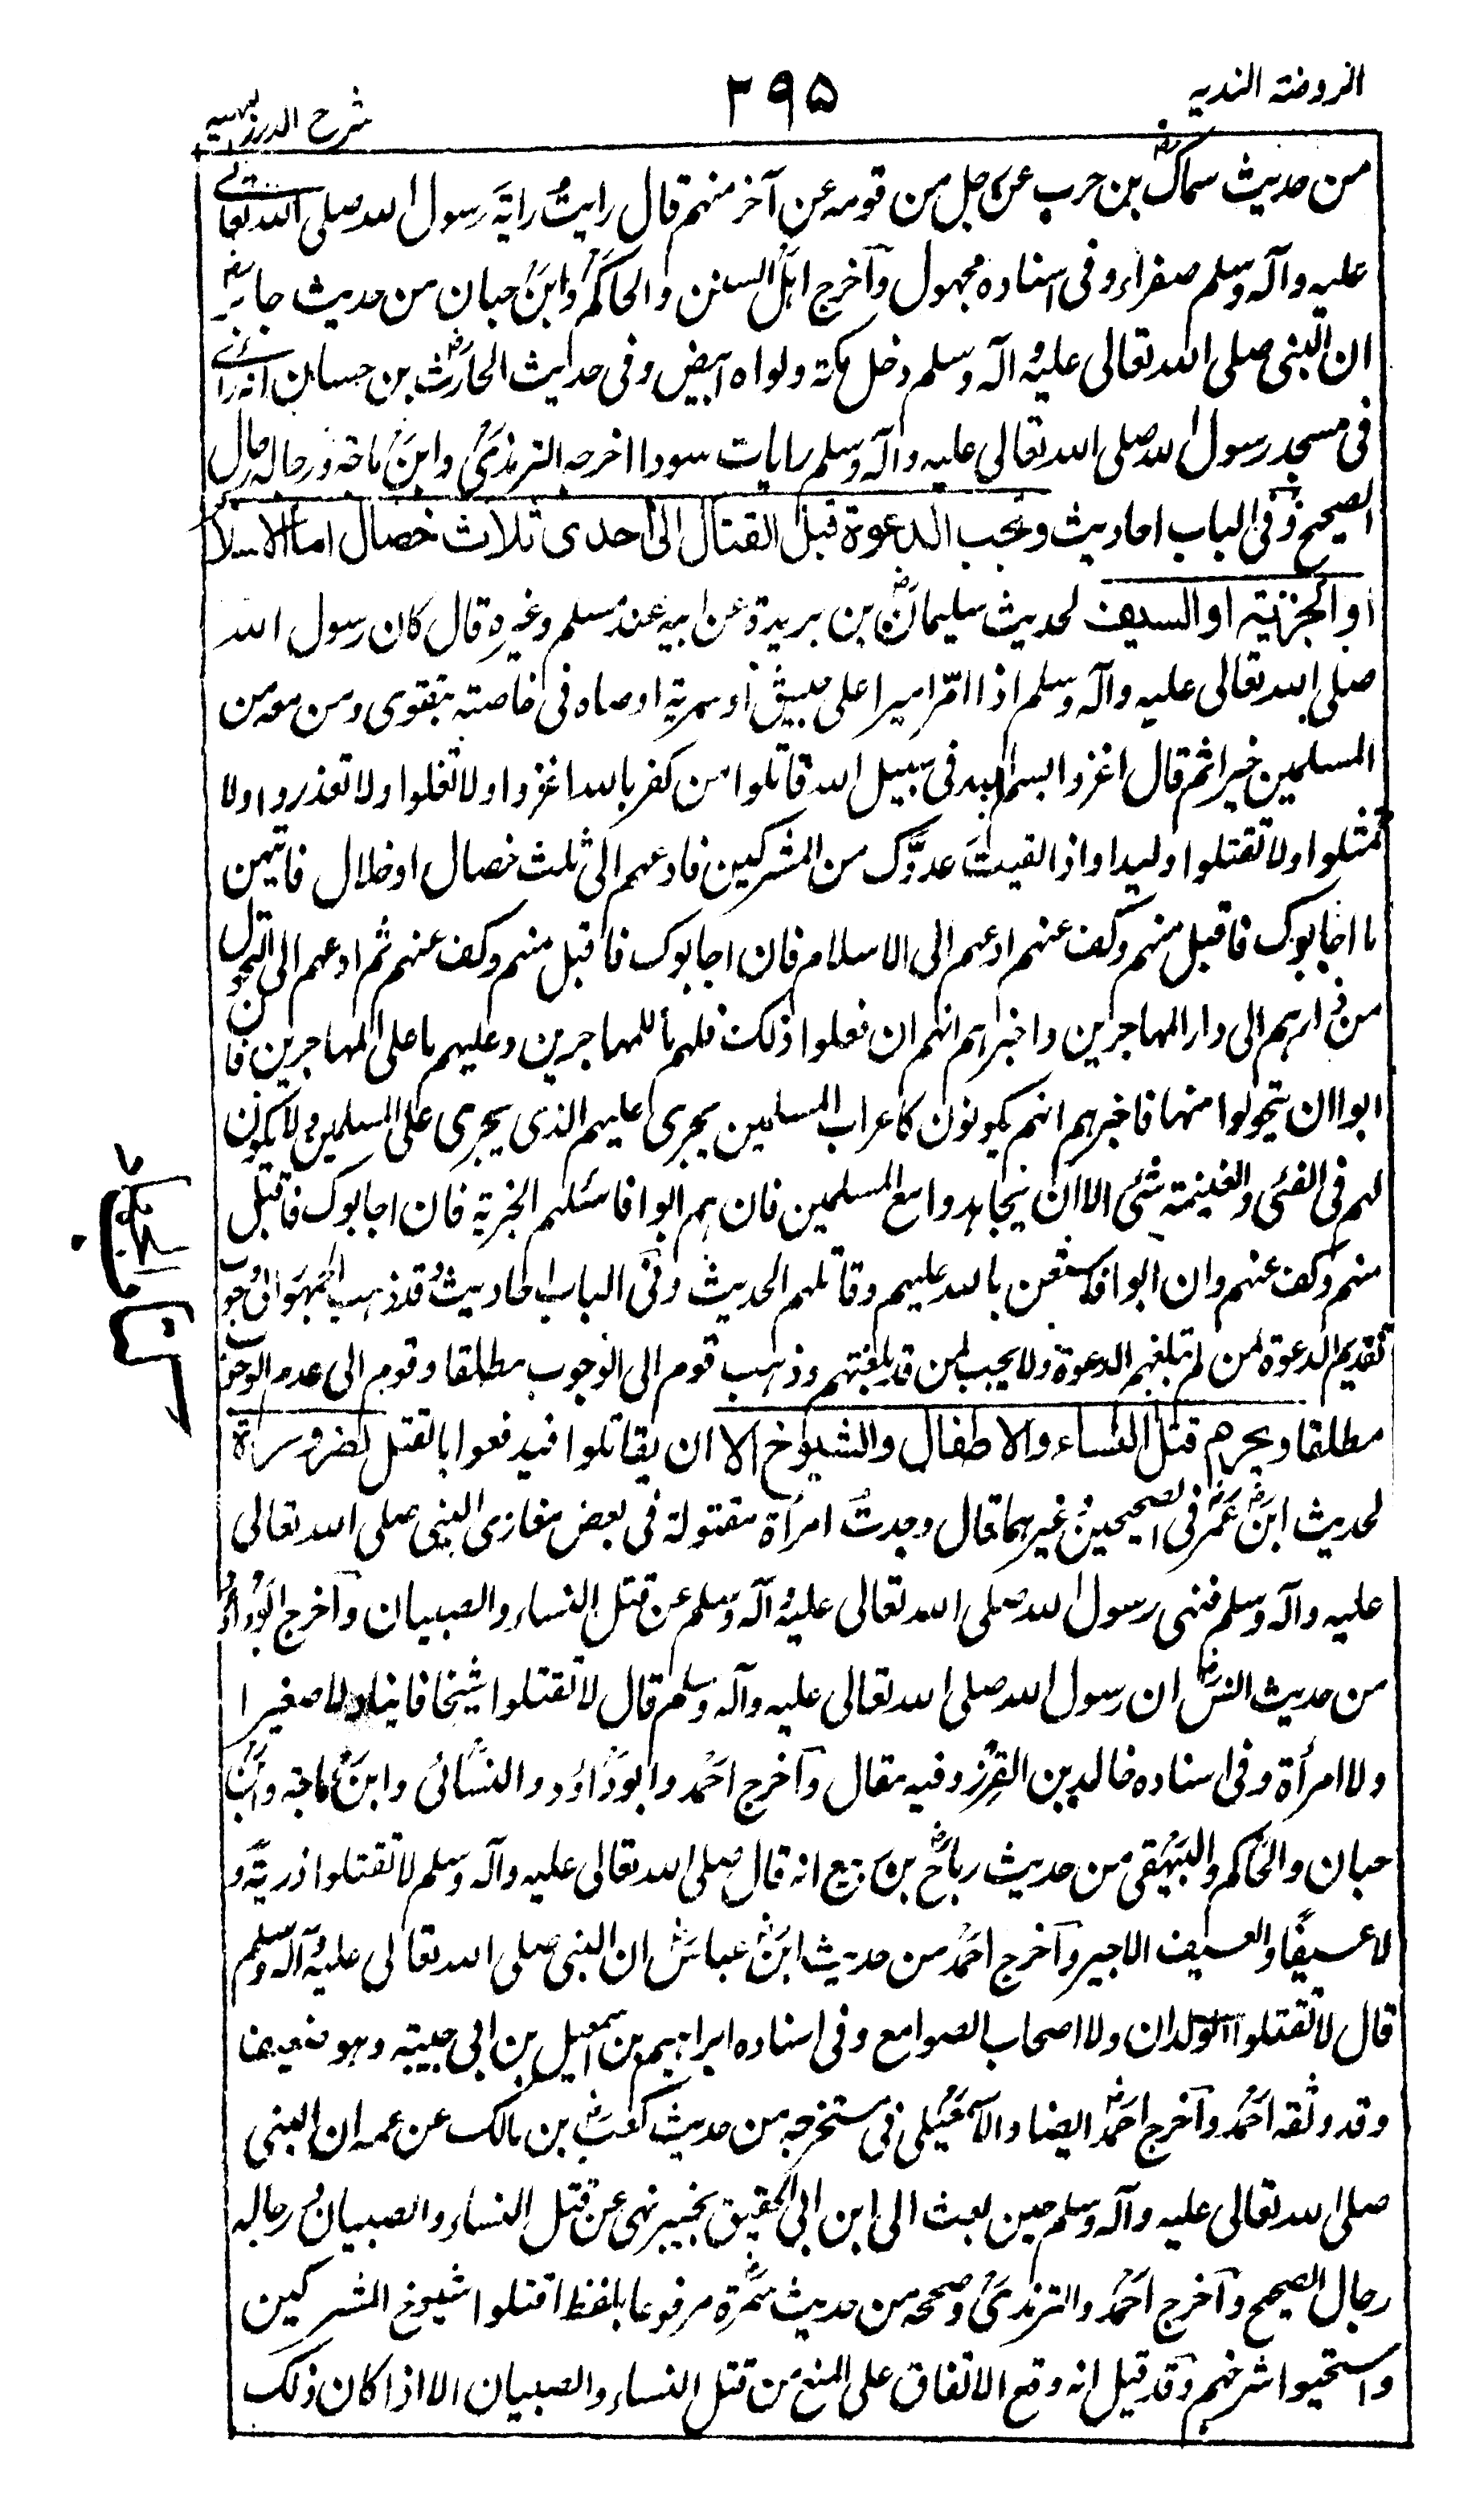 الروضة الندية
٢٩٥
شرح الدرر البهية
من حديث سماك بن حرب عن رجل من قومه عن آخر منهم قال رايت راية رسول الله صلى الله تعالى
عليه وآله وسلم صفراء وفى اسناده مجهول وآخرج اهل السنن والحاكم وابن حبان من حديث جابر
ان النبى صلى الله تعالى عليه وآله وسلم دخل مكة ولواه ابيض وفى حديث الحارث بن حسان انه رأى
فى مسجد رسول الله صلى الله تعالى عليه وآله وسلم رايات سودا اخرجه الترمذى وابن ماجة ورجاله رجال
الصحيح وفى الباب احاديث وتجب الدعوة قبل القتال الى احدى ثلاث خصال اما الاسلام
او الجزية او السيف لحديث سليمان بن بريدة عن ابيه عند مسلم وغيره قال كان رسول الله
صلى الله تعالى عليه وآله وسلم اذا امّر اميرا على جيش او سرية اوصاه فى خاصته بتقوى ومن معه من
المسلمين خيرا ثم قال اغزوا بسم الله فى سبيل الله قاتلوا من كفر بالله اغزوا ولا تغلوا ولا تغدروا ولا
تمثلوا ولا تقتلوا وليدا واذا لقيت عدوّك من المشركين فادعهم الى ثلث خصال او خلال فايتهن
ما اجابوك فاقبل منهم وكف عنهم ادعهم الى الاسلام فان اجابوك فاقبل منهم وكف عنهم ثم ادعهم الى التحول
من دارهم الى دار المهاجرين واخبرهم انهم ان فعلوا ذلك فلهم ما للمهاجرين وعليهم ما على المهاجرين فان
ابوا ان يتحولوا منها فاخبرهم انهم يكونون كاعراب المسلمين يجرى عليهم الذى يجرى على المسلمين ولا يكون
لهم فى الفئى والغنيمة شئ الا ان يجاهدوا مع المسلمين فان هم ابوا فاسئلهم الجزية فان اجابوك فاقبل
منهم وكف عنهم وان ابوا فاستعن بالله عليهم وقاتلهم الحديث وفى الباب احاديث وقد ذهب الجمهور الى وجوب
تقديم الدعوة لمن لم تبلغهم الدعوة ولا يجب لمن قد بلغتهم وذهب قوم الى الوجوب مطلقا وقوم الى عدم الوجوب
مطلقا ويحرم قتل النساء والاطفال والشيوخ الا ان يقاتلوا فيدفعوا بالقتل لضرورة
لحديث ابن عمر فى الصحيحين وغيرهما قال وجدت امرأة مقتولة فى بعض مغازى النبى صلى الله تعالى
عليه وآله وسلم فنهى رسول الله صلى الله تعالى عليه وآله وسلم عن قتل النساء والصبيان وآخرج ابوداؤد
من حديث انس ان رسول الله صلى الله تعالى عليه وآله وسلم قال لا تقتلوا شيخا فانيا ولا صغيرا
ولا امرأة وفى اسناده خالد بن الفرز وفيه مقال وآخرج احمد وابو داؤد والنسائى وابن ماجة وابن
حبان والحاكم والبيهقى من حديث رباح بن ربيع انه قال صلى الله تعالى عليه وآله وسلم لا تقتلوا ذرية و
لا عسيفا والعسيف الاجير وآخرج احمد من حديث ابن عباس ان النبى صلى الله تعالى عليه وآله وسلم
قال لا تقتلوا الولدان ولا اصحاب الصوامع وفى اسناده ابراهيم بن اسمعيل بن ابى حبيبة وهو ضعيف
وقد وثقه احمد وآخرج احمد ايضا والاسمعيلى فى مستخرجه من حديث كعب بن مالك عن عمه ان النبى
صلى الله تعالى عليه وآله وسلم حين بعث الى ابن ابى الحقيق بخيبر نهى عن قتل النساء والصبيان ورجاله
رجال الصحيح وآخرج احمد والترمذى وصححه من حديث سمرة مرفوعا بلفظ اقتلوا شيوخ المشركين
واستحيوا شرخهم وقد قيل انه وقع الاتفاق على المنع من قتل النساء والصبيان الا اذا كان ذلك